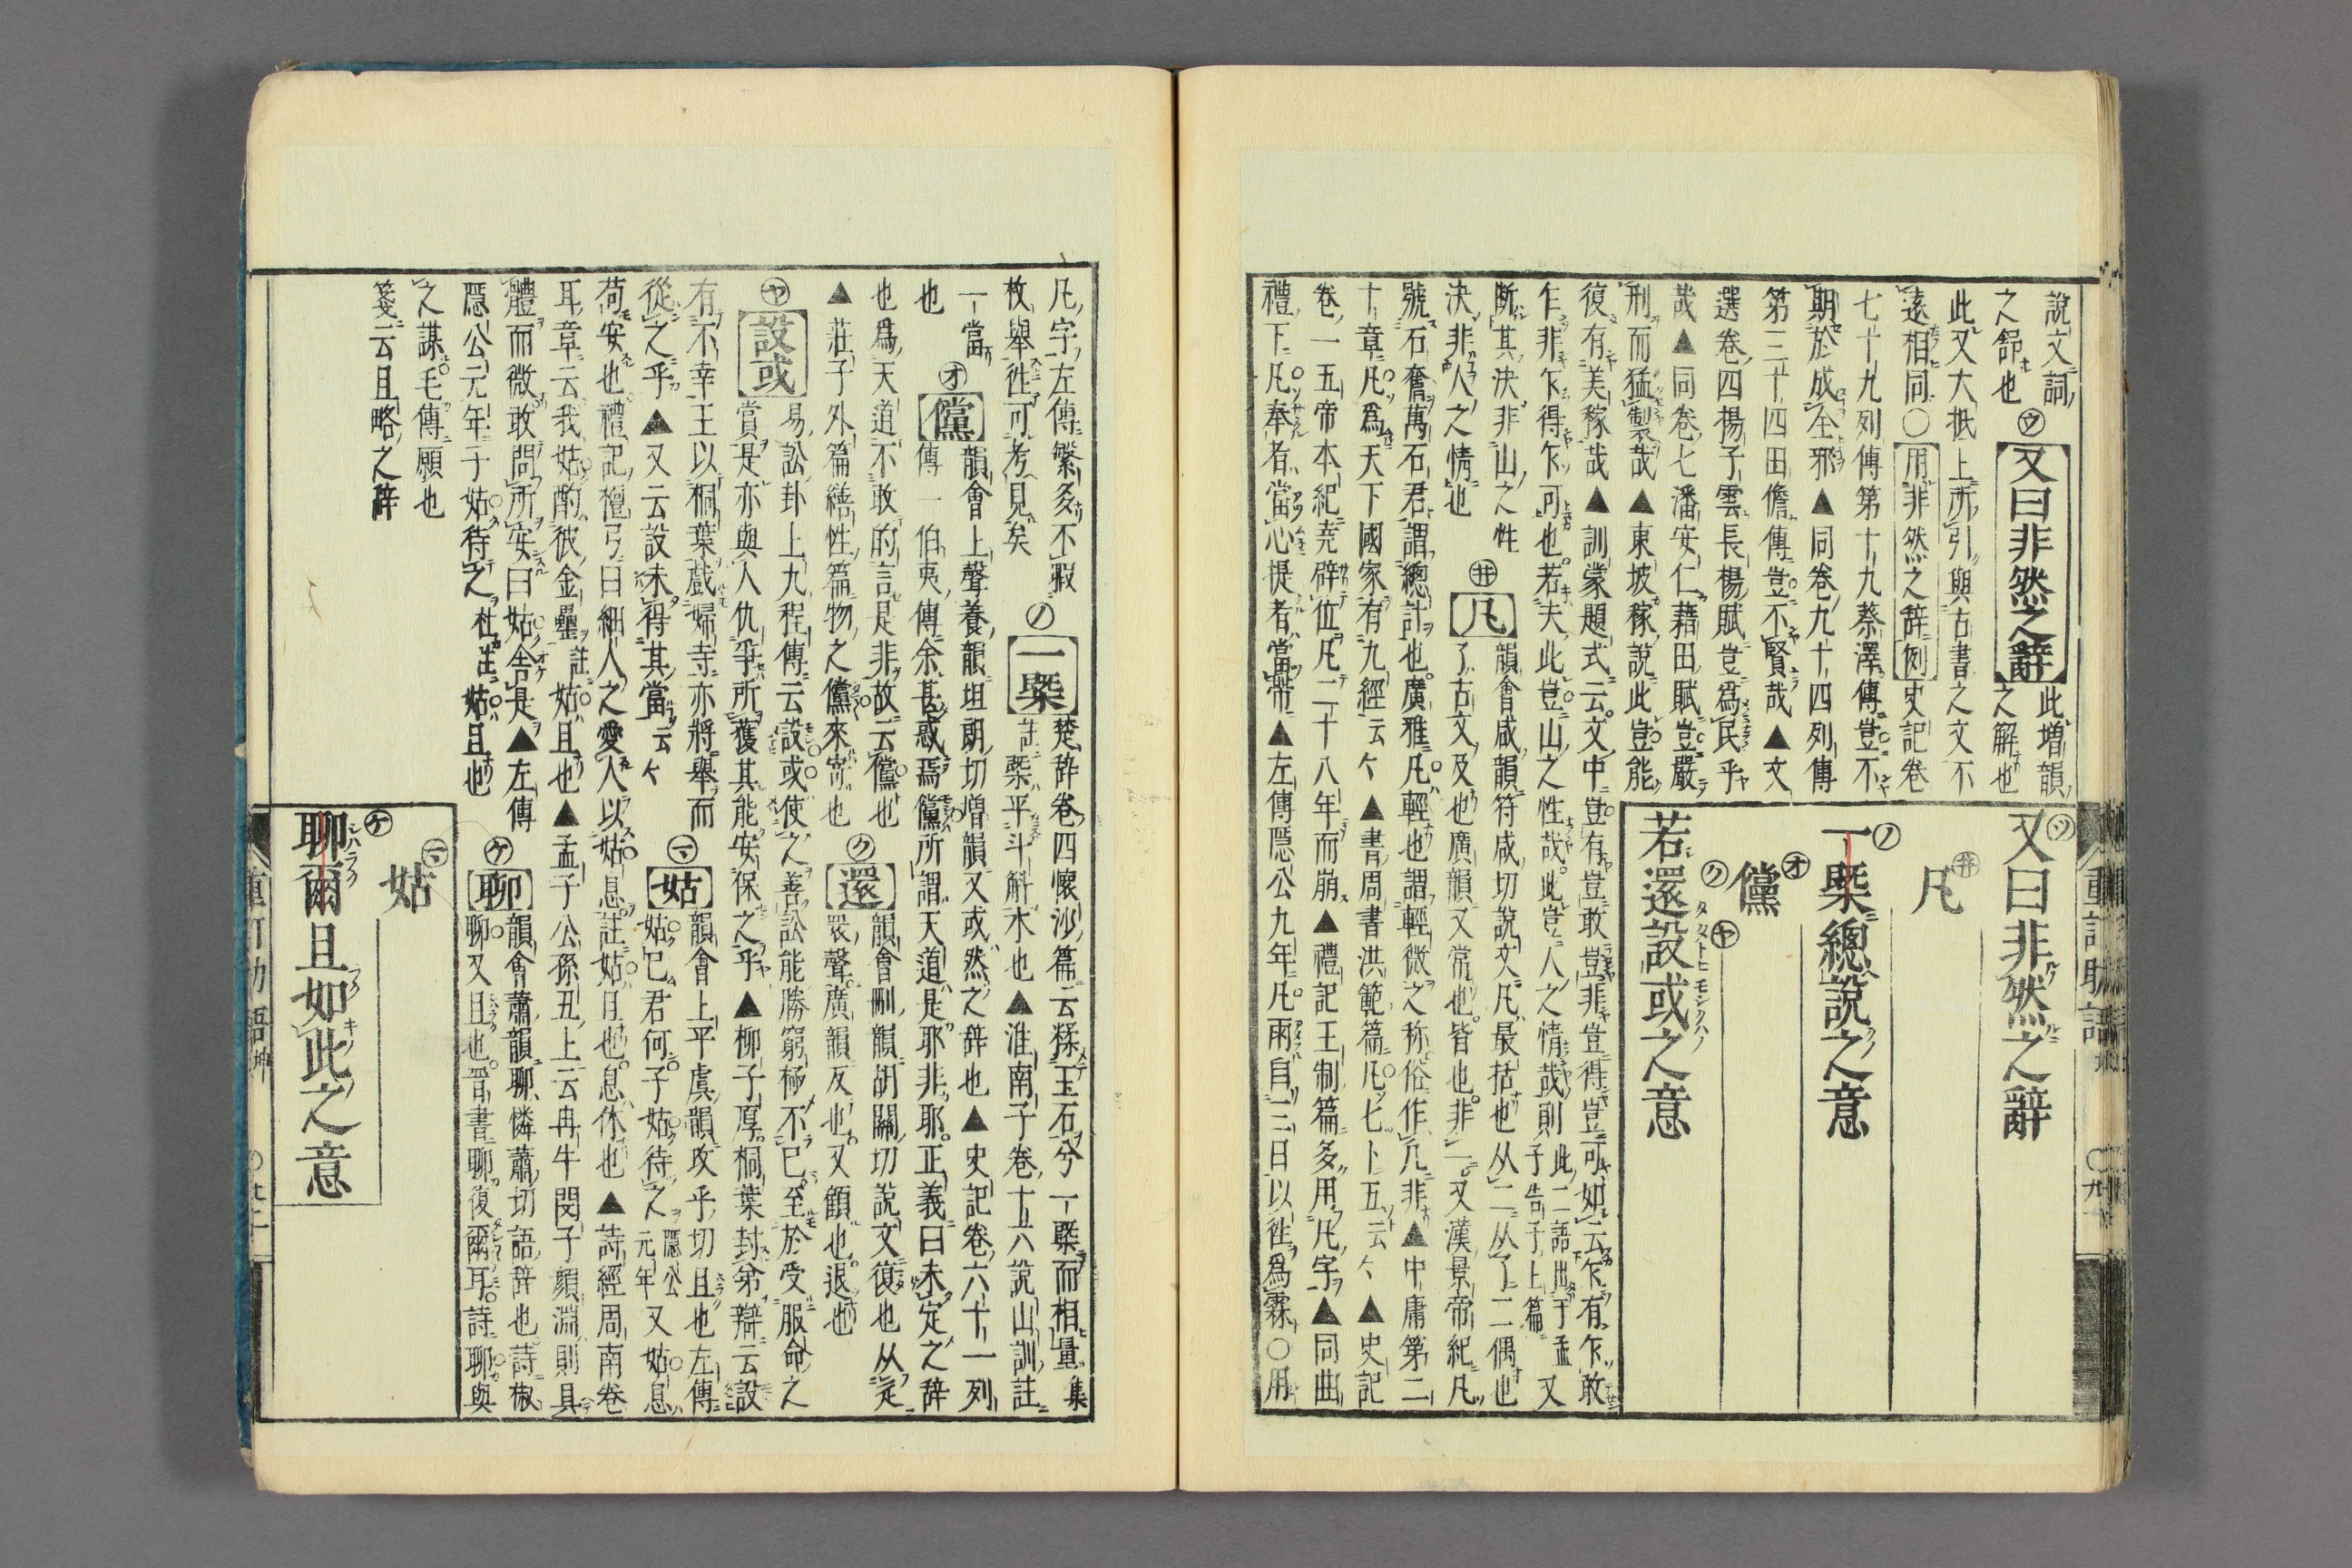 又曰非然之辭
凡
一槩總說之意
儻
若還設或之意
說文詞
之舒也㋒又曰非然之辭此增韻
之解也
此又大抵上所引與古書之文不
遠相同○用非然之辞例史記卷
七十九列傳第十九蔡澤傳豈不
期於成全邪▲同卷九十四列傳
第三十四田儋傳豈不賢哉▲文
選卷四楊子雲長楊賦豈爲民乎
哉▲同卷七潘安仁藉田賦豈嚴
刑而猛製哉▲東坡稼說此豈能
復有美稼哉▲訓蒙題式云文中豈有豈敢豈非豈得豈可如云乍有乍敢
乍非乍得乍可也若夫此豈山之性哉此豈人之情哉則此二語出于孟
子告子上篇又
断其決非山之性
決非人之情也㋼凡韻會咸韻符咸切說文凡最括也从二从了二偶也
了古文及也廣韻又常也皆也非一又漢景帝紀凡
號石奮萬石君謂總計也廣雅凡輕也謂輕微之称俗作凣非▲中庸第二
十章凡爲天下國家有九經云々▲書周書洪範篇凡七卜五云々▲史記
卷一五帝本紀堯辟位凡二十八年而崩▲禮記王制篇多用凡字▲同曲
禮下凡奉者當心提者當帶▲左傳隱公九年凡雨自三日以徃爲霖○用
凡字左傳繁多不暇
枚舉徃可考見矣㋨一槩楚辞卷四懷沙篇云糅玉石兮一槩而相量集
註槩平斗斛木也▲淮南子卷十六說山訓註
一當
也㋔儻韻會上聲養韻坦朗切增韻又或然之辞也▲史記卷六十一列
傳一伯夷傳余甚惑焉儻所謂天道是耶非耶正義曰未定之辞
也爲天道不敢的言是非故云儻也
▲莊子外篇繕性篇物之儻來寄也㋗還韻會刪韻胡關切說文復也从辵
睘聲廣韻反也又顧也退也
㋳設或易訟卦上九程傳云設或使之善訟能勝窮極不已至於受服命之
賞是亦與人仇爭所獲其能安保之乎▲柳子厚桐葉封弟辯云設
有不幸王以桐葉戲婦寺亦將舉而
從之乎▲又云設未得其當云々㋮姑韻會上平虞韻攻乎切且也左傳
姑已君何子姑待之隱公
元年又姑息
荷安也禮記檀弓曰細人之愛人以姑息註姑且也息休也▲詩經周南卷
耳章云我姑酌彼金罍註姑且也▲孟子公孫丑上云冉牛閔子顏淵則具
體而微敢問所安曰姑舍是▲左傳
隱公元年子姑待之杜註姑且也㋘聊韻會蕭韻聊憐蕭切語辞也詩椒
聊又且也晋書聊復爾耳詩聊與
之謀毛傳願也
箋云且略之辞
姑
聊爾且如此之意